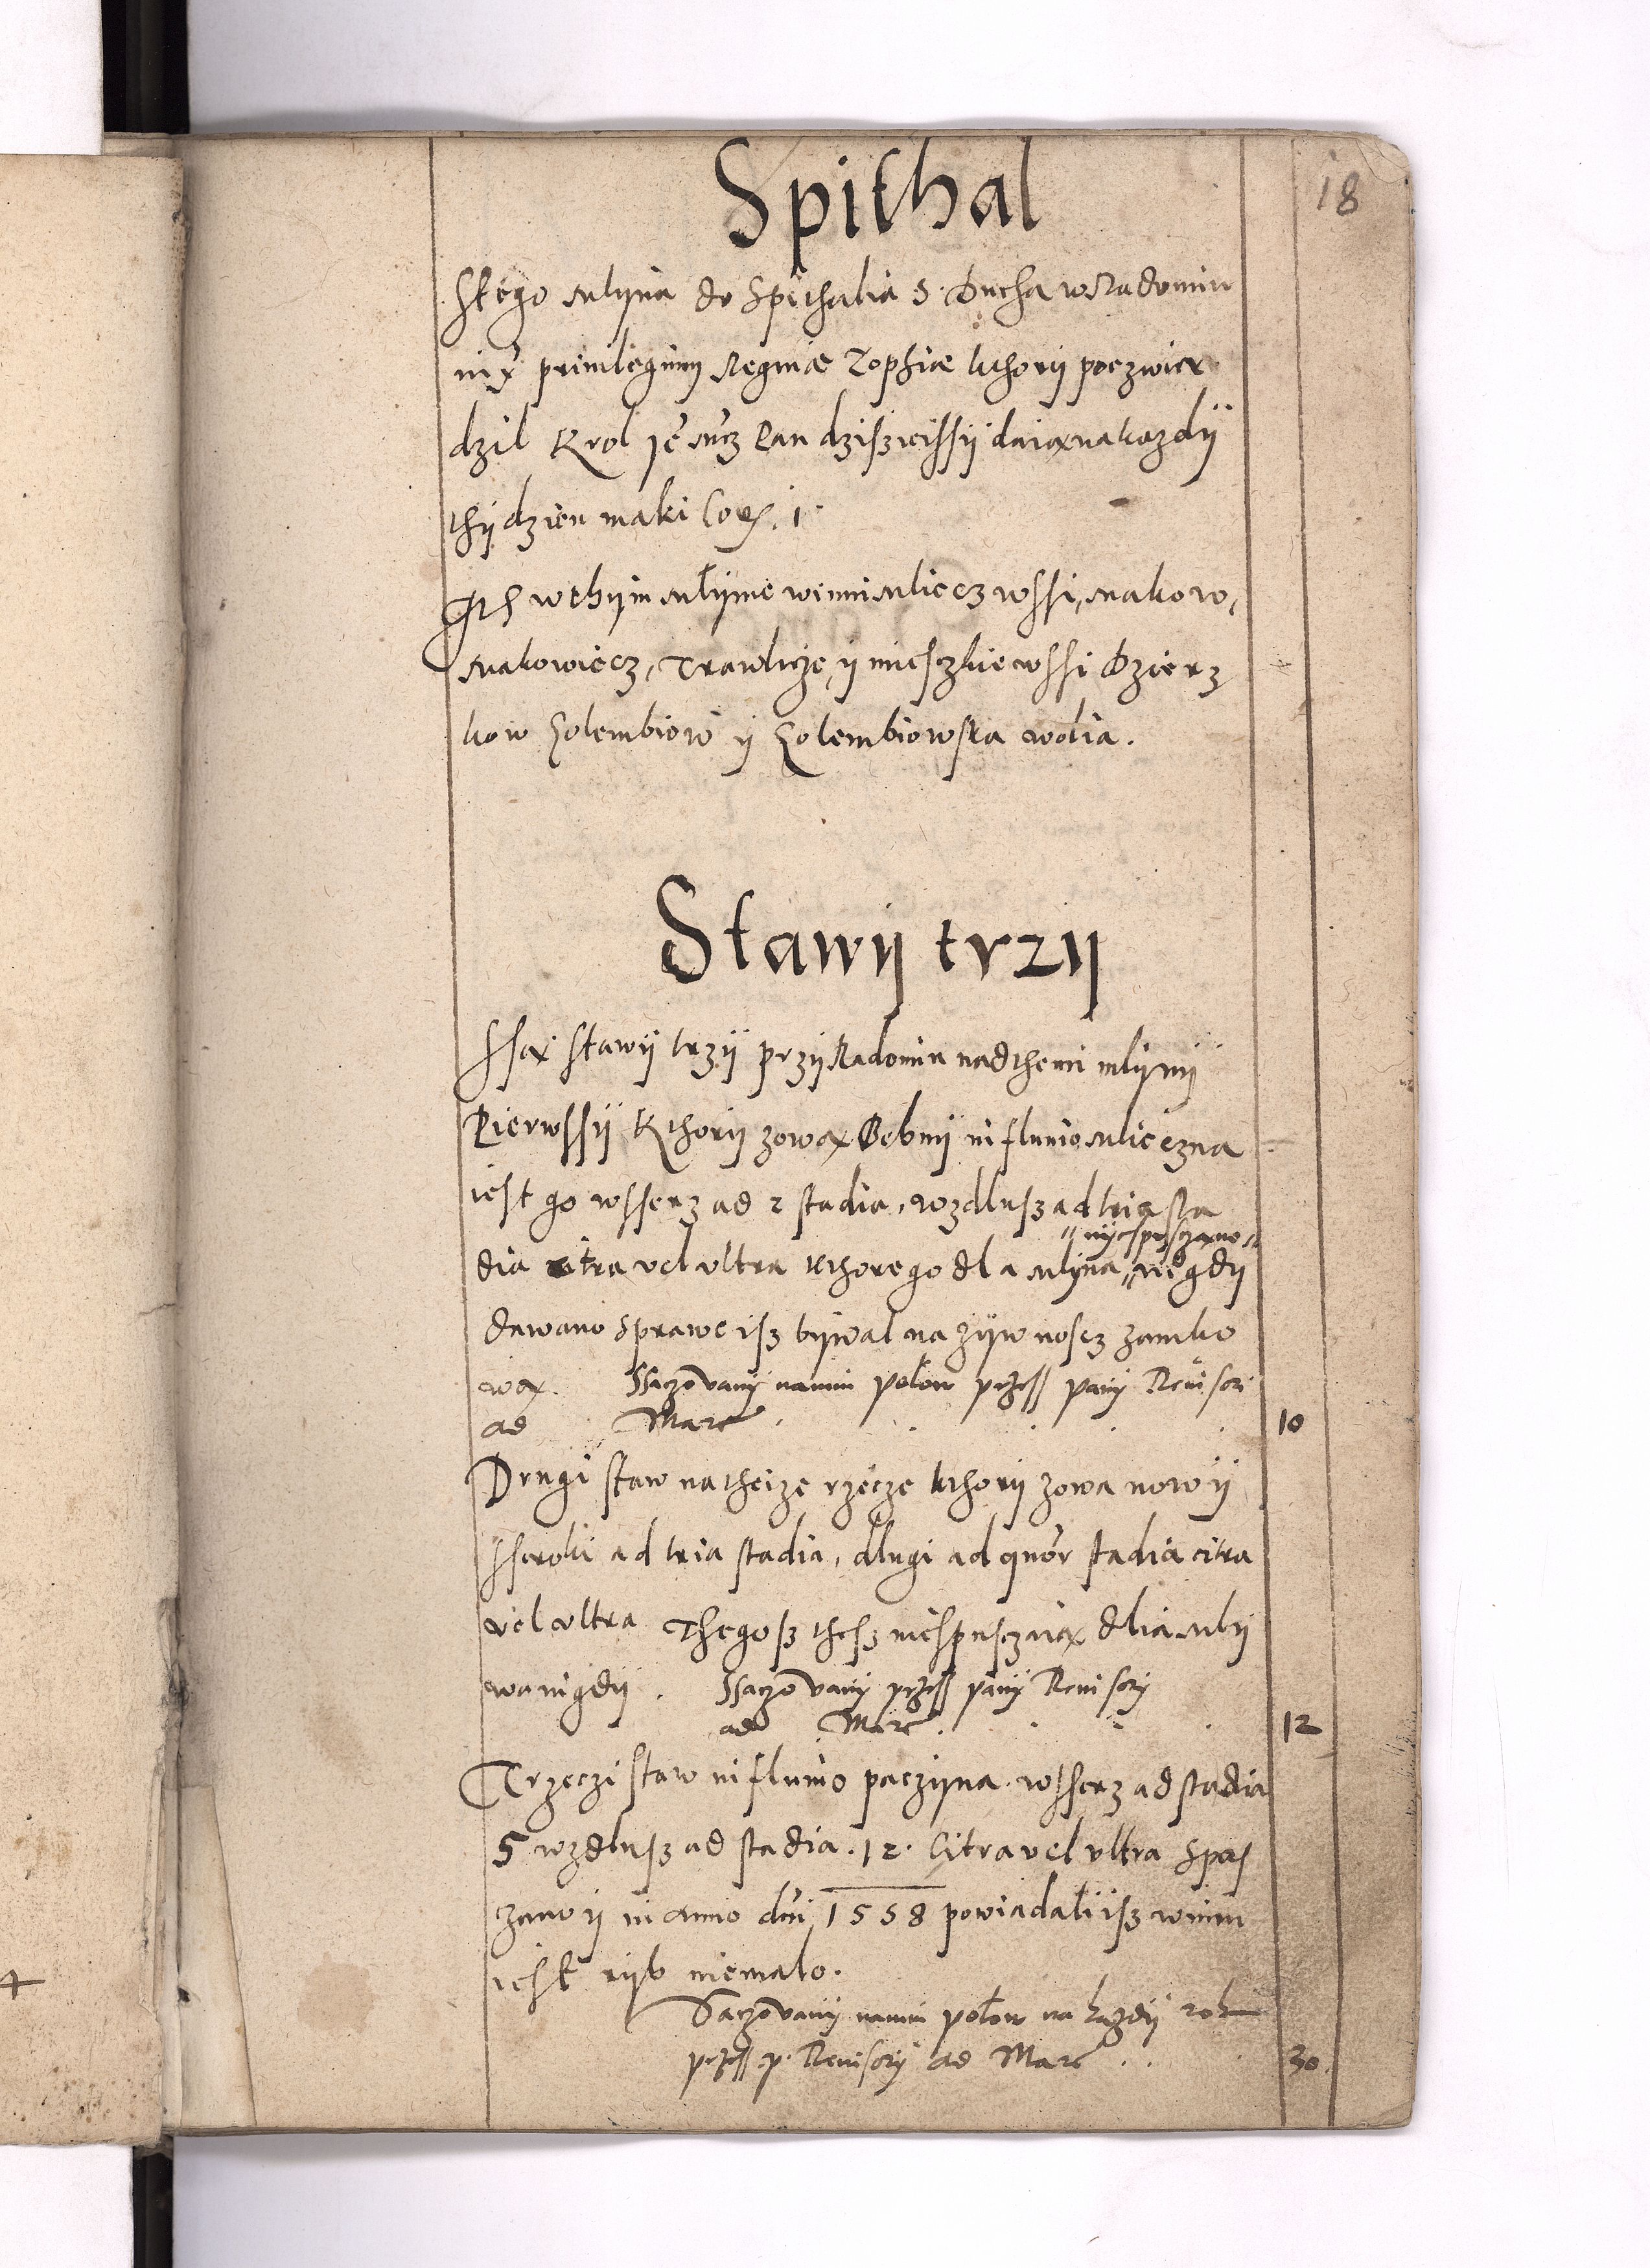 18
Spithal
Stego Mlyna do Spithalia S. Ducha w Radomiu
iux priuilegium Reginæ Zophiæ kthory poczwier
dzil Krol Je Mcz Pan dzissieissÿ daiax na kozdÿ
thÿdzien maki Cor. 1.
w thym Mlynie winni Mliecz wssi, Makow,
Makowiecz, Trawlicze, y mieszkie wssi Dzierz
kow Golembiow y Golembiowska wolia.
Stawÿ trzÿ
Ssax stawÿ trzÿ przÿ Radomiu nad themi mlynÿ
Pierwssÿ Kthory zowax Bebny in fluuio Mliczna
iest go wsserz ad 2 stadia, wzdlusz ad tria sta
" nyespusczano "
dia citra vel vltra kthorego dla Mlyna " niegdÿ
dawano sprawe isz bÿwal na zÿwnoscz zamko
wax. Ssaczovany nanim polow przess pany Revisori
ad Marc . . . . . 10
Drugi staw na theize rzecze kthory zowa nowÿ
sseroki ad tria stadia, dlugi ad quor stadia citra
vel vltra Thegosz thesz niespusczaiax dlia Mlÿ
wa nigdÿ . Ssaczovany przess pany Revisory
ad Marc . . . . 12
Trzeczi staw in fluuio paczyna. wsserz ad stadia
5 wzdlusz ad stadia. 12. Citra vel vltra Spus
zano y in anno dni 1558 powiadali isz w nim
iest ryb niemalo.
Saczovany nanim polow na kazdÿ rok
przess p. Revisory ad Marc . . . 30.